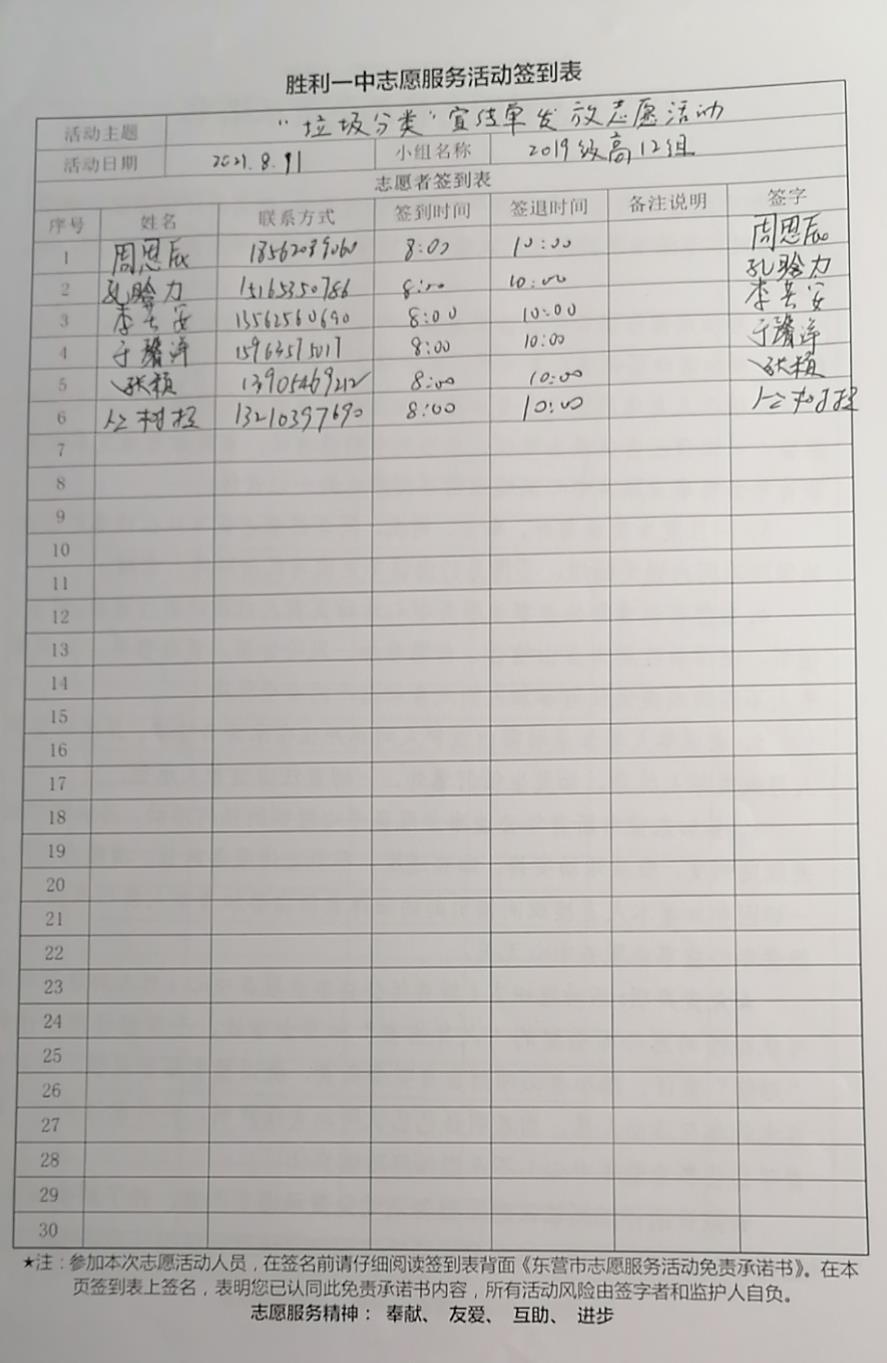 胜利一中志愿服务活动签到表
活动主题 “垃圾分类”宣传单发放志愿活动
活动日期 2021.8.11 小组名称 2019级高12组
志愿者签到表
序号 姓名 联系方式 签到时间 签退时间 备注说明 签字
1 周思辰 18562089060 8:00 10:00 周思辰
2 孔验力 15165350786 8:00 10:00 孔验力
3 李芸安 13562560690 8:00 10:00 李芸安
4 于馨洋 15964575017 8:00 10:00 于馨洋
5 张颖 13905469212 8:00 10:00 张颖
6 13210397690 8:00 10:00
7
8
9
10
11
12
13
14
15
16
17
18
19
20
21
22
23
24
25
26
27
28
29
30
★注：参加本次志愿活动人员，在签名前请仔细阅读签到表背面《东营市志愿服务活动免责承诺书》。在本
页签到表上签名，表明您已认同此免责承诺书内容，所有活动风险由签字者和监护人自负。
志愿服务精神： 奉献、 友爱、 互助、 进步